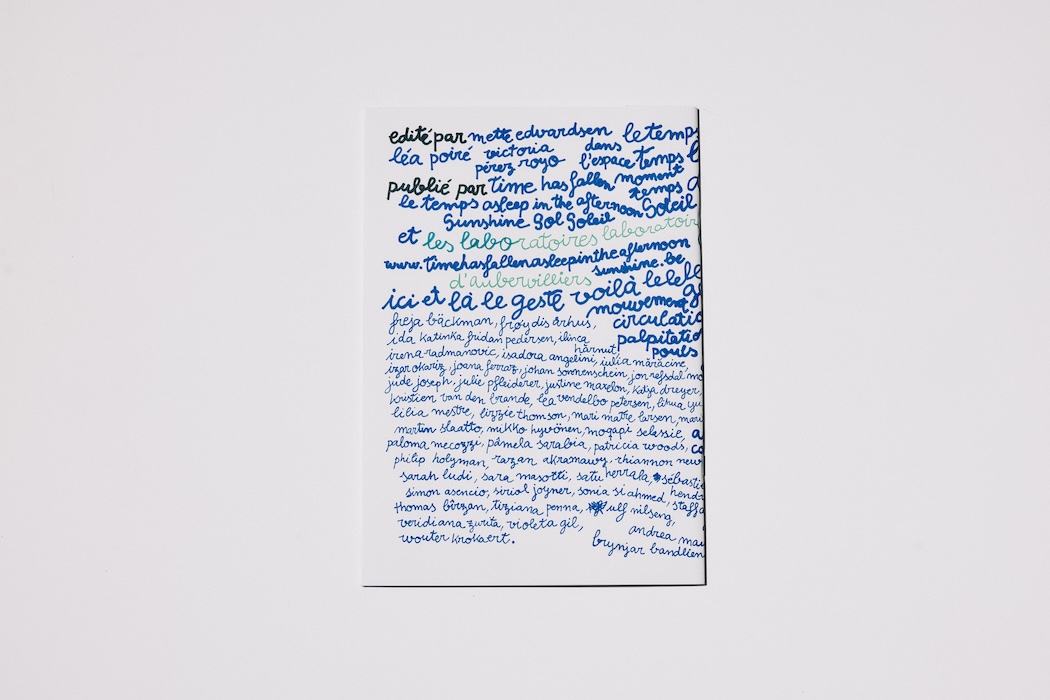 edité par mette edvardsen le temps
léa poiré victoria dans
pérez royo l'espace temps
publié par time has fallen moment
temps
le temps asleep in the afternoon Soleil
Sunshine Sol Soleil
et les laboratoires laboratoir
www.timehasfallenasleepintheafternoon
sunshine.be
d'aubervilliers
ici et là le geste voilà lelele
mouvement
freja bäckman, frøydis århus, circulatio
ida katinka fridan pedersen, ilinca palpitatio
hărnuț pouls
irena radmanovic, isadora angelini, iulia mărăcine,
izar okariz, joana ferraz, johan sonnenschein, jon refsdal mo
jude joseph, julie pfleiderer, justine maxelon, katja dreyer,
kristien van den brande, léa vendelbo petersen, lihua yu
lilia mestre, lizzie thomson, mari matre larsen, mari
martin slaatto, mikko hyvönen, mogapi selassie, a
paloma mecozzi, pâmela sarabia, patricia woods, co
philip holyman, razan akramawy, rhiannon new
sarah ludi, sara masotti, satu herrala, sébastie
hend
simon asencio, siriol joyner, sonia si ahmed, staffa
thomas bîrzan, tiziana penna, ulf nilseng,
veridiana zurita, violeta gil, andrea mau
wouter krokaert. brynjar bandlien